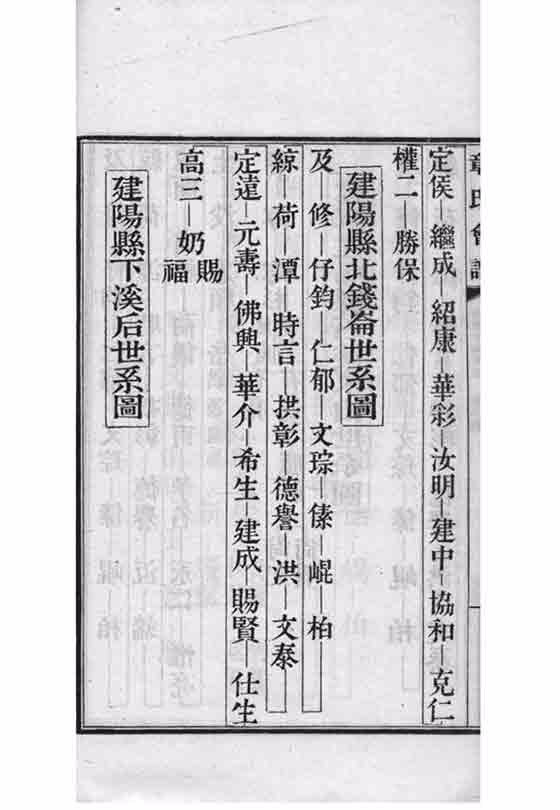 章氏會譜
定侯—繼成—紹康—華彩—汝明—建中—協和—克仁
權二 勝保
建陽縣北錢崙世系圖
及—修—仔鈞—仁郁—文琮—傃—崐—柏
綡—荷—潭—時言—拱彰—德譽—洪—文泰
定遠—元壽—佛興—華介—希生—建成—賜賢—仕生
高三—奶賜
福
建陽縣下溪后世系圖